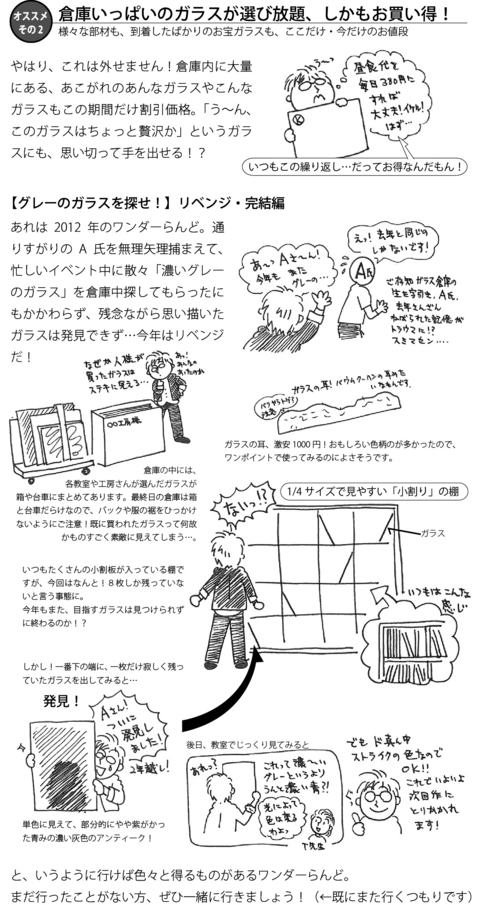 オススメ
その2
倉庫いっぱいのガラスが選び放題、しかもお買い得！
様々な部材も、到着したばかりのお宝ガラスも、ここだけ・今だけのお値段
やはり、これは外せません！倉庫内に大量
にある、あこがれのあんなガラスやこんな
ガラスもこの期間だけ割引価格。「う〜ん、
このガラスはちょっと贅沢か」というガラ
スにも、思い切って手を出せる！？
う〜
昼食代を
毎日380円に
すれば
大丈夫！イケル！
はず…
いつもこの繰り返し…だってお得なんだもん！
【グレーのガラスを探せ！】リベンジ・完結編
あれは 2012 年のワンダーらんど。通
りすがりの A 氏を無理矢理捕まえて、
忙しいイベント中に散々「濃いグレー
のガラス」を倉庫中探してもらったに
もかかわらず、残念ながら思い描いた
ガラスは発見できず…今年はリベンジ
だ！
あ〜Aさ〜ん！
今年も また
グレーの…
えっ！去年と同じの
しかないです！
A氏
ご存知ガラス倉庫の
生き字引き、A氏。
去年さんざん
ねばられた記憶が
トラウマに！？
スミマセン…
なぜか人様が
買ったガラスは
ステキに見える…
〇〇工房様
ガラスの耳！バウムクーヘンの耳みたいなもんです
ガラスの耳、激安 1000 円！おもしろい色柄のが多かったので、
ワンポイントで使ってみるのによさそうです。
倉庫の中には、
各教室や工房さんが選んだガラスが
箱や台車にまとめてあります。最終日の倉庫は箱
と台車だらけなので、バックや服の裾をひっかけ
ないようにご注意！既に買われたガラスって何故
かものすごく素敵に見えてしまう…。
ないっ！？
1/4 サイズで見やすい「小割り」の棚
ガラス
いつもはこんな
感じ
いつもたくさんの小割板が入っている棚で
すが、今回はなんと！８枚しか残っていな
いと言う事態に。
今年もまた、目指すガラスは見つけられず
に終わるのか！？
しかし！一番下の端に、一枚だけ寂しく残っ
ていたガラスを出してみると…
発見！
Aさん！
ついに
発見し
ました！
2年越し！
単色に見えて、部分的にやや紫がかっ
た青みの濃い灰色のアンティーク！
後日、教室でじっくり見てみると
あれっ？
これって濃〜い
グレーというより
うんと濃い青？！
光によって
色は変る
わよっ
T先生
でも ド真ん中
ストライクの色なので
OK!!
これでいよいよ
次回作に
とりかかれ
ます！
と、いうように行けば色々と得るものがあるワンダーらんど。
まだ行ったことがない方、ぜひ一緒に行きましょう！（←既にまた行くつもりです）